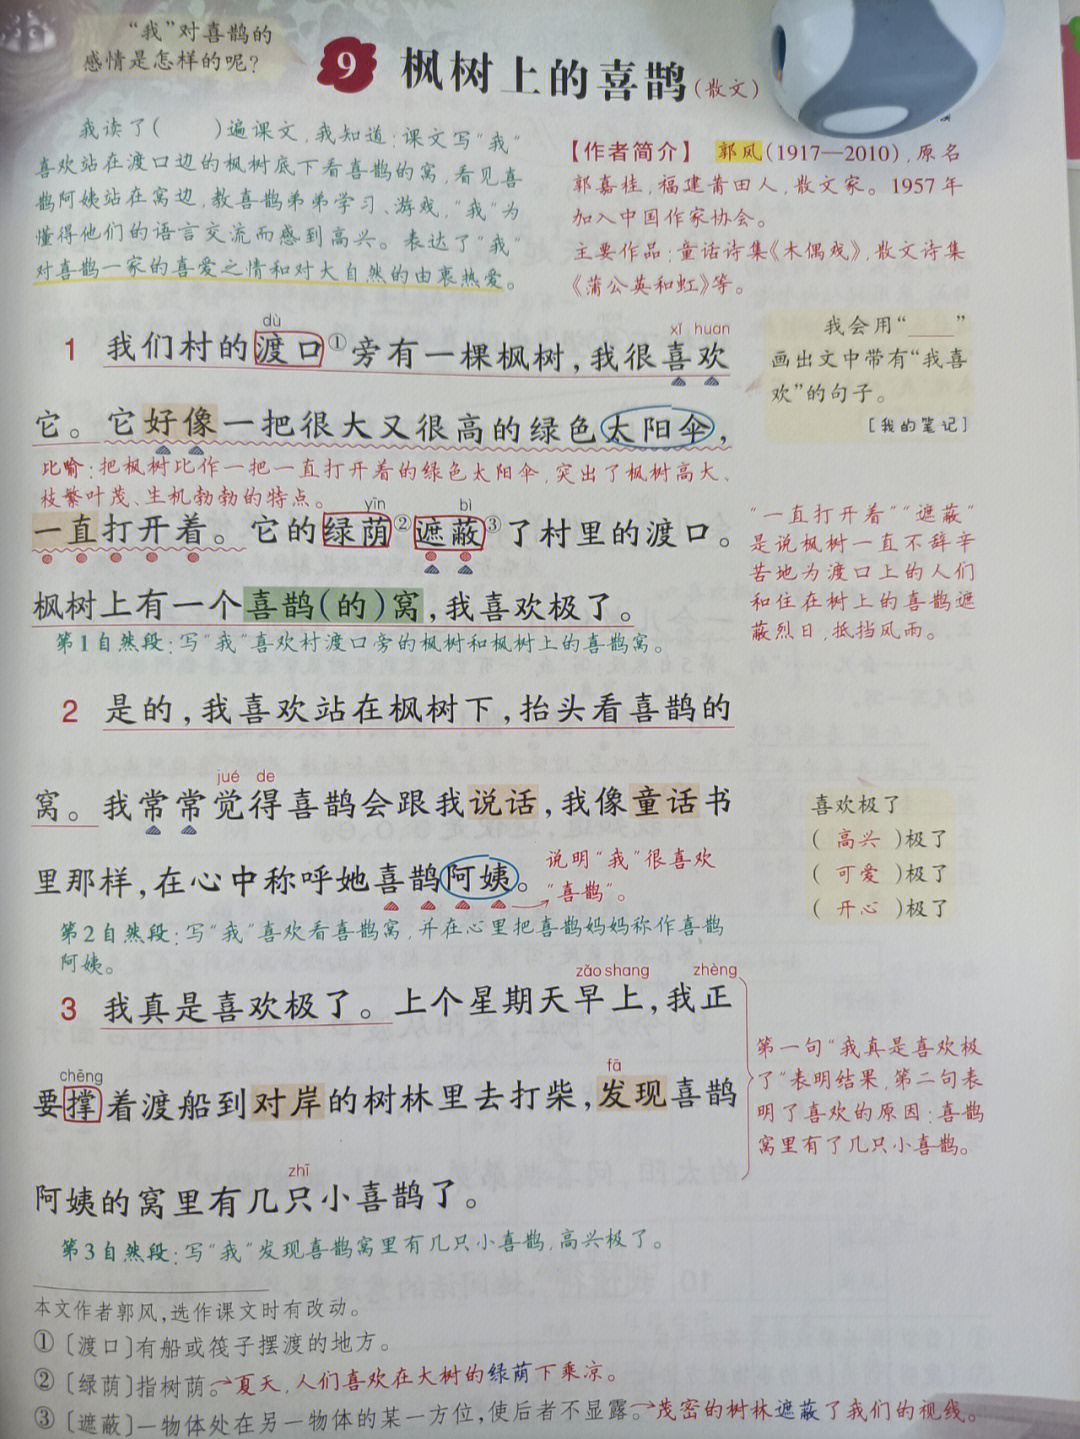 “我”对喜鹊的
感情是怎样的呢?
9 枫树上的喜鹊(散文)
我读了( )遍课文,我知道:课文写“我”
喜欢站在渡口边的枫树底下看喜鹊的窝,看见喜
鹊阿姨站在窝边,教喜鹊弟弟学习、游戏,“我”为
懂得他们的语言交流而感到高兴。表达了“我”
对喜鹊一家的喜爱之情和对大自然的由衷热爱。
【作者简介】 郭风(1917—2010),原名
郭嘉桂,福建莆田人,散文家。1957年
加入中国作家协会。
主要作品:童话诗集《木偶戏》,散文诗集
《蒲公英和虹》等。
dù xǐ huan
1 我们村的渡口①旁有一棵枫树,我很喜欢
它。它好像一把很大又很高的绿色太阳伞,
比喻:把枫树比作一把一直打开着的绿色太阳伞,突出了枫树高大、
枝繁叶茂、生机勃勃的特点。
yīn bì
一直打开着。它的绿荫②遮蔽③了村里的渡口。
枫树上有一个喜鹊(的)窝,我喜欢极了。
第1自然段:写“我”喜欢村渡口旁的枫树和枫树上的喜鹊窝。
我会用“____”
画出文中带有“我喜
欢”的句子。
[我的笔记]
“一直打开着”“遮蔽”
是说枫树一直不辞辛
苦地为渡口上的人们
和住在树上的喜鹊遮
蔽烈日,抵挡风雨。
2 是的,我喜欢站在枫树下,抬头看喜鹊的
jué de
窝。我常常觉得喜鹊会跟我说话,我像童话书
里那样,在心中称呼她喜鹊阿姨。
说明“我”很喜欢
“喜鹊”。
第2自然段:写“我”喜欢看喜鹊窝,并在心里把喜鹊妈妈称作喜鹊
阿姨。
喜欢极了
( 高兴 )极了
( 可爱 )极了
( 开心 )极了
zǎo shang zhèng
3 我真是喜欢极了。上个星期天早上,我正
chēng fā
要撑着渡船到对岸的树林里去打柴,发现喜鹊
zhī
阿姨的窝里有几只小喜鹊了。
第3自然段:写“我”发现喜鹊窝里有几只小喜鹊,高兴极了。
第一句“我真是喜欢极
了”表明结果,第二句表
明了喜欢的原因:喜鹊
窝里有了几只小喜鹊。
本文作者郭风,选作课文时有改动。
①〔渡口〕有船或筏子摆渡的地方。
②〔绿荫〕指树荫。→夏天,人们喜欢在大树的绿荫下乘凉。
③〔遮蔽〕一物体处在另一物体的某一方位,使后者不显露。→茂密的树林遮蔽了我们的视线。